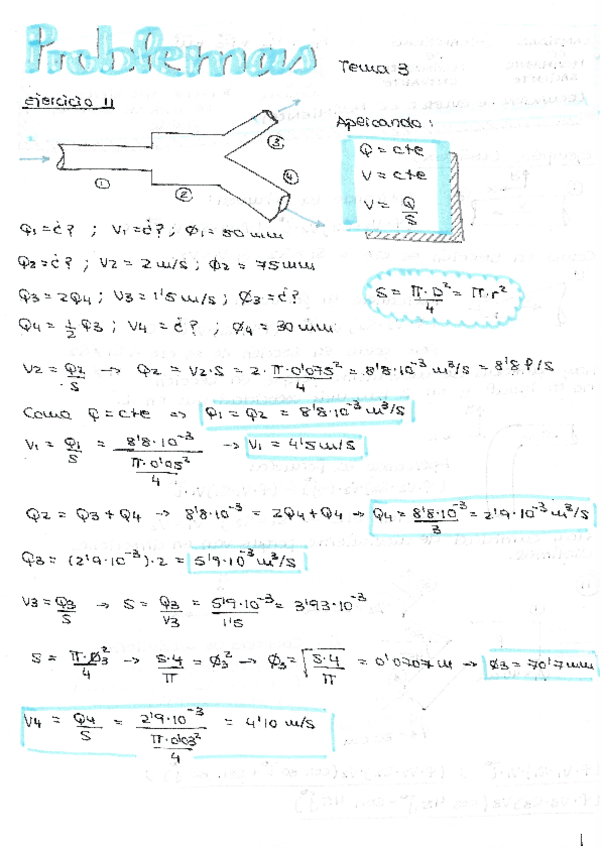 Problemas Tema 3
Ejercicio 11
Aplicando:
Q = cte
V = cte
V = Q/S
① ② ③ ④
Q1 = ¿? ; V1 = ¿? ; Ø1 = 50 mm
Q2 = ¿? ; V2 = 2 m/s ; Ø2 = 75 mm
Q3 = 2Q4 ; V3 = 1'5 m/s ; Ø3 = ¿?
Q4 = 1/2 Q3 ; V4 = ¿? ; Ø4 = 30 mm
S = π·D²/4 = π·r²
V2 = Q2/S → Q2 = V2·S = 2·π·0'075²/4 = 8'8·10⁻³ m³/s = 8'8 l/s
Como Q = cte ⇒ Q1 = Q2 = 8'8·10⁻³ m³/s
V1 = Q1/S = 8'8·10⁻³/(π·0'05²/4) → V1 = 4'5 m/s
Q2 = Q3 + Q4 → 8'8·10⁻³ = 2Q4 + Q4 → Q4 = 8'8·10⁻³/3 = 2'9·10⁻³ m³/s
Q3 = (2'9·10⁻³)·2 = 5'9·10⁻³ m³/s
V3 = Q3/S → S = Q3/V3 = 5'9·10⁻³/1'5 = 3'93·10⁻³
S = π·Ø3²/4 → S·4/π = Ø3² → Ø3 = √(S·4/π) = 0'0707 m → Ø3 = 70'7 mm
V4 = Q4/S = 2'9·10⁻³/(π·0'03²/4) = 4'10 m/s
1